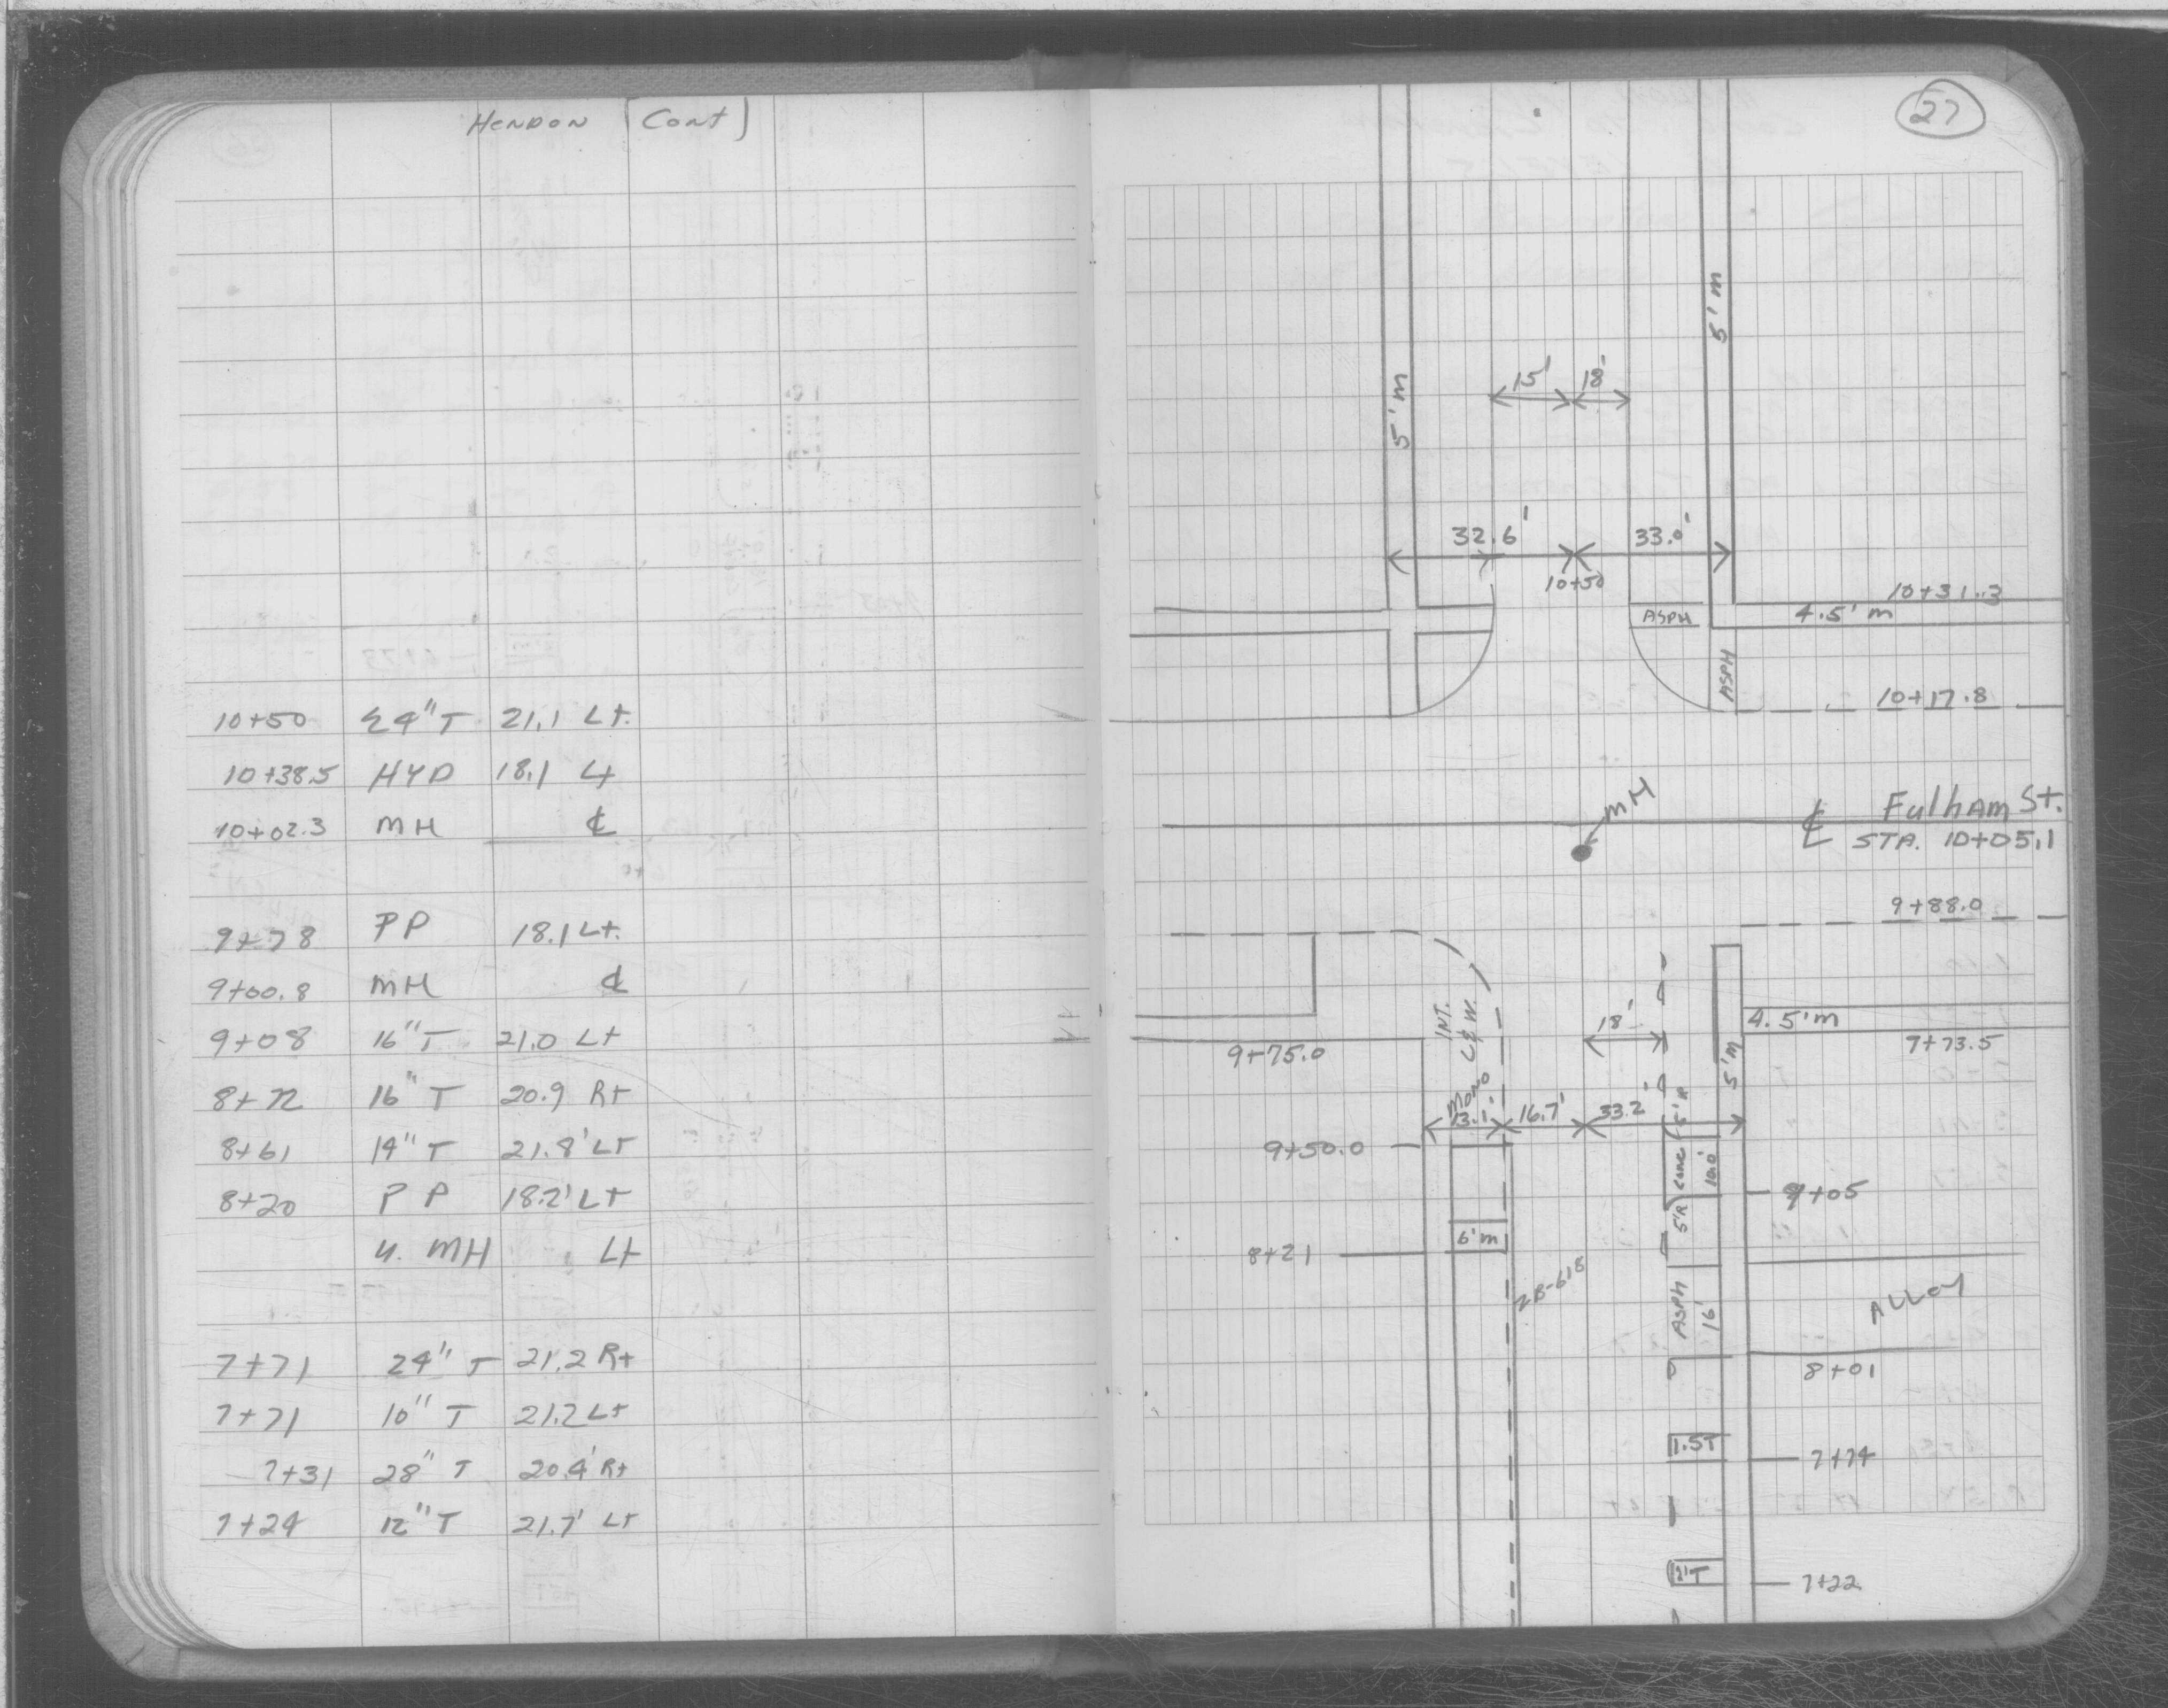 HENDON (Cont)
10+50 24"T 21.1 Lt.
10+38.5 HYD 18.1 Lt
10+02.3 MH ℄
9+78 PP 18.1 Lt.
9+00.8 MH ℄
9+08 16"T 21.0 Lt
8+72 16"T 20.9 Rt
8+61 14"T 21.8' Lt
8+20 PP 18.2' Lt
U. MH Lt
7+71 24"T 21.2 Rt
7+71 10"T 21.2 Lt
7+31 28"T 20.4' Rt
7+24 12"T 21.7' Lt
27
5'm
5'm
15' 18'
32.6' 33.0'
10+50
10+31.3
ASPH
4.5'm
ASPH
10+17.8
MH
℄ Fulham St.
STA. 10+05.1
9+88.0
INT.
C&W.
MONO
18'
4.5'm
9+75.0
9+73.5
5'm
13.1' 16.7' 33.2'
5'R
9+50.0
CONC
10.0'
9+05
5'R
6'm
8+21
2B-618
ASPH
16'
ALLEY
8+01
1.5T
7+74
2'T
7+22